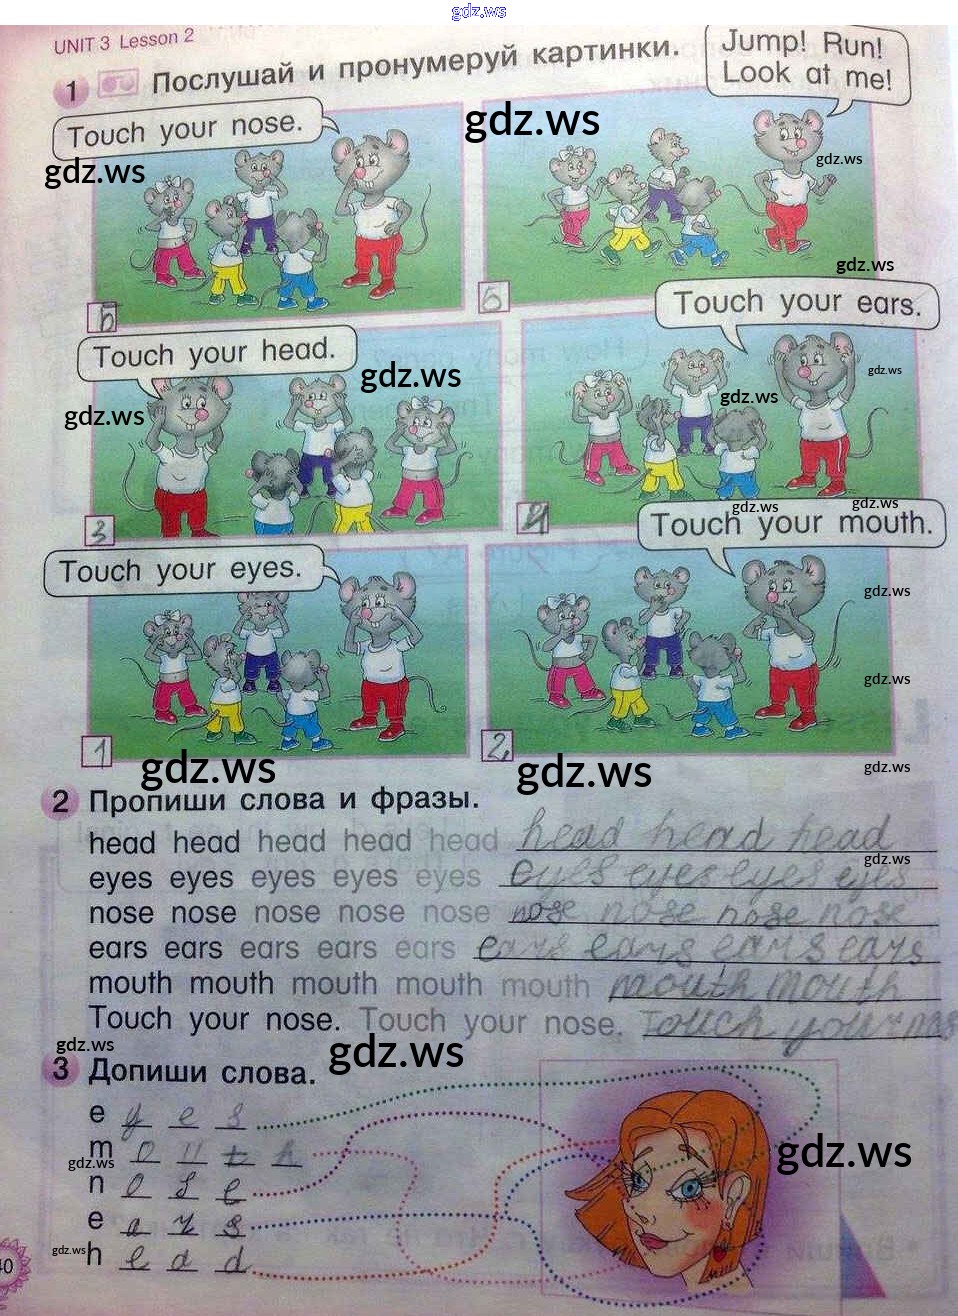 gdz.ws
UNIT 3 Lesson 2
1 Послушай и пронумеруй картинки.
Jump! Run!
Look at me!
Touch your nose.
gdz.ws
gdz.ws
gdz.ws
gdz.ws
6
5
Touch your ears.
Touch your head.
gdz.ws
gdz.ws
gdz.ws
gdz.ws
3
4
gdz.ws
gdz.ws
Touch your mouth.
Touch your eyes.
gdz.ws
gdz.ws
1
2
gdz.ws
gdz.ws
gdz.ws
2 Пропиши слова и фразы.
head head head head head head head head
gdz.ws
eyes eyes eyes eyes eyes eyes eyes eyes eyes
nose nose nose nose nose nose nose nose nose
ears ears ears ears ears ears ears ears ears
mouth mouth mouth mouth mouth mouth mouth
Touch your nose. Touch your nose. Touch your nos
gdz.ws
gdz.ws
3 Допиши слова.
e y e s
m o u t h
gdz.ws
gdz.ws
n o s e
e a r s
gdz.ws
h e a d
40